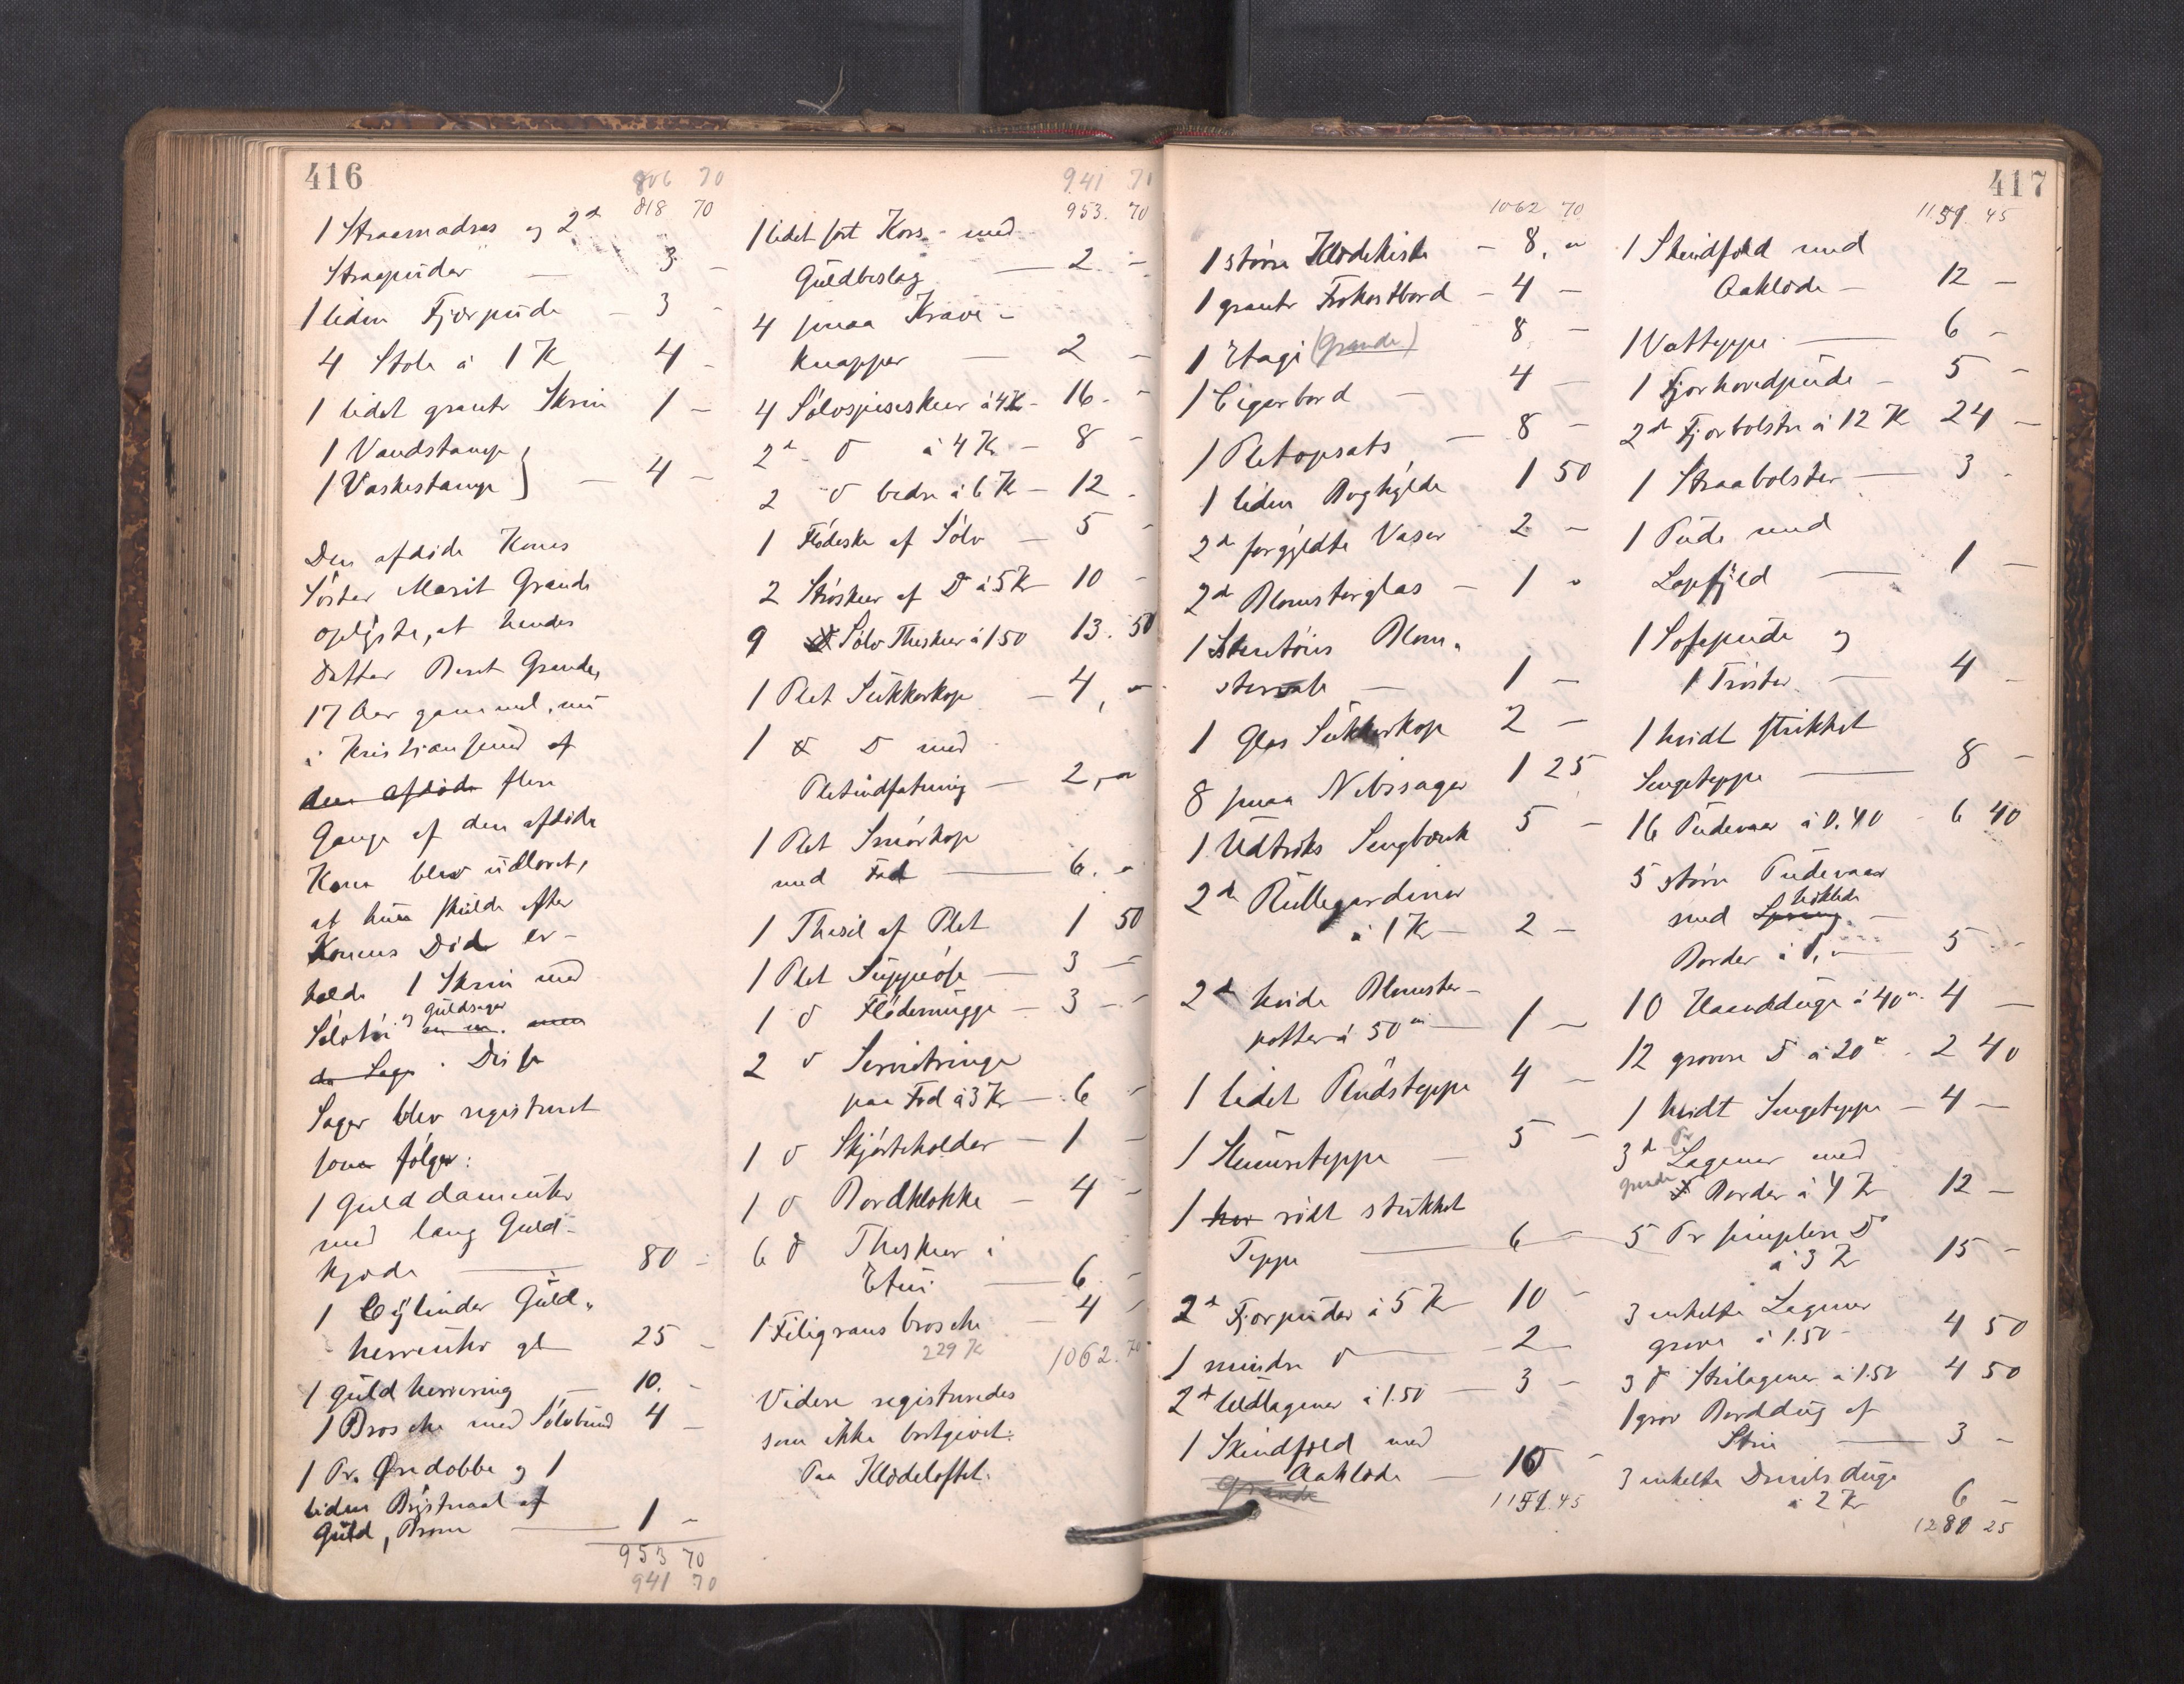 416
806 70
818 70
1 Straamadras og 2d
Straapuder — 3 –
1 liden Fjærpude – 3 –
4 Stole à 1 K 4 –
1 lidet grønt Skrin 1 –
1 Vandstamp
1 Vaskestamp } – 4 –
Den afdøde Kones
Søster Marit Grande
oplyste, at hendes
Datter Beret Grande,
17 Aar gammel, nu
i Kristiansund af
den afdøde flere
Gange af den afdøde
Kone blev udlovet,
at hun skulde efter
Konens Død er-
holde 1 Skrin med
Sølvtøi og Guldsager
de Sager. Disse
Sager blev registreret
som følger:
1 Guld dameuhr
med lang Guld-
kjæde — 80 –
1 Cylinder Guld-
herreuhr gl 25 –
1 Guld herrering — 10. –
1 Brosche med Sølvbund 4 –
1 Pr. Øredobbe og 1
liden Brystnaal af
Guld, Brom — 1 –
953 70
941 70
941 70
953. 70
1 lidet sort Kors – med
Guldbeslag — 2 –
4 smaa Krave-
knapper — 2 –
4 Sølvspiseskeer à 4 K – 16. –
2d D à 4 K – 8 –
2 D bedre à 6 K – 12 –
1 Flødeske af Sølv — 5 –
2 Strøskeer af D à 5 K 10 –
9 Sølv Theskeer à 1 50 13. 50
1 Plet Sukkerkop — 4, –
1 D med
Pletindfatning — 2, –
1 Plet Smørkop
med Fod — 6. –
1 Thesil af Plet 1 50
1 Plet Suppeøse — 3 –
1 D Flødemugge — 3 –
2 D Servietringe
paa Fod à 3 K — 6 –
1 D Skjørteholder — 1 –
1 D Bordklokke — 4 –
6 D Theskeer i
Etui — 6. –
1 Filigrans brosche — 4 –
229 K 1062. 70
Videre registreredes
som ikke bortgivet:
Paa Klædeloftet.
417
1062 70
1 større Klædekiste – 8, –
1 grønt Frokostbord – 4 –
1 Etage (Grande) 8 –
1 Cigarbord – 4 –
1 Pletopsats — 8 –
1 liden Boghylde 1 50
2d forgyldte Vaser 2 –
2d Blomsterglas – 1 –
1 Stentøis Blom-
stervase — 1 –
1 Glas Sukkerkop 2 –
8 smaa Nibssager 1 25
1 Udtræks Sengbænk 5 –
2d Rullegardiner
à 1 K — 2 –
2d hvide Blomster-
potter à 50 — 1 –
1 lidet Pludsteppe 4 –
1 Slumreteppe — 5 –
1 rødt strikket
Teppe — 6 –
2d Fjærpuder à 5 K 10 –
1 mindre D — 2 –
2d Uldlagener à 1.50 — 3 –
1 Skindfeld med
Aaklæde — 10 –
Grande
1151. 45
1151 45
1 Skindfeld med
Aaklæde — 12 –
1 Vatteppe — 6 –
1 Fjærhovedpude — 5 –
2d Fjærbolstre à 12 K 24 –
1 Straabolster — 3 –
1 Pude med
Lapfyld — 1 –
1 Sofapude og
1 Trøster — 4 –
1 hvidt strikket
Sengeteppe — 8 –
16 Pudevaar à 0.40 – 6 40
5 større Pudevaar
med heklede
Border à 1, – 5 –
10 Haandduge à 40 4 –
12 grovere D à 20 2 40
1 hvidt Sengeteppe — 4 –
3d Pr Lagener med
Border à 4 K 12 –
5 Pr simplere D
à 3 K 15 –
3 enkelte Lagener
grove à 1.50 – 4 50
3 D Strilagener à 1.50 4 50
1 grov Borddug af
Strie — 3 –
3 enkelte Dreils duge
à 2 Kr 6 –
1281 25